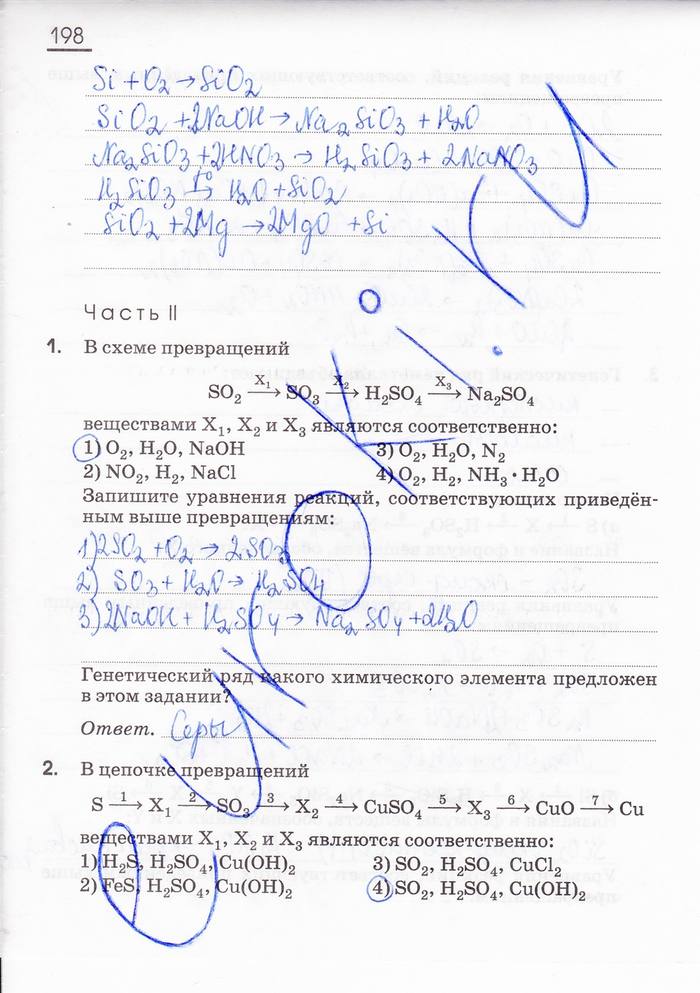 198
Si + O₂ → SiO₂
SiO₂ + 2NaOH → Na₂SiO₃ + H₂O
Na₂SiO₃ + 2HNO₃ → H₂SiO₃ + 2NaNO₃
H₂SiO₃ t°→ H₂O + SiO₂
SiO₂ + 2Mg → 2MgO + Si
Часть II
1. В схеме превращений
SO₂ X₁→ SO₃ X₂→ H₂SO₄ X₃→ Na₂SO₄
веществами X₁, X₂ и X₃ являются соответственно:
1) O₂, H₂O, NaOH 3) O₂, H₂O, N₂
2) NO₂, H₂, NaCl 4) O₂, H₂, NH₃ · H₂O
Запишите уравнения реакций, соответствующих приведён-
ным выше превращениям:
1) 2SO₂ + O₂ → 2SO₃
2) SO₃ + H₂O → H₂SO₄
3) 2NaOH + H₂SO₄ → Na₂SO₄ + 2H₂O
Генетический ряд какого химического элемента предложен
в этом задании?
Ответ. Серы
2. В цепочке превращений
S 1→ X₁ 2→ SO₃ 3→ X₂ 4→ CuSO₄ 5→ X₃ 6→ CuO 7→ Cu
веществами X₁, X₂ и X₃ являются соответственно:
1) H₂S, H₂SO₄, Cu(OH)₂ 3) SO₂, H₂SO₄, CuCl₂
2) FeS, H₂SO₄, Cu(OH)₂ 4) SO₂, H₂SO₄, Cu(OH)₂